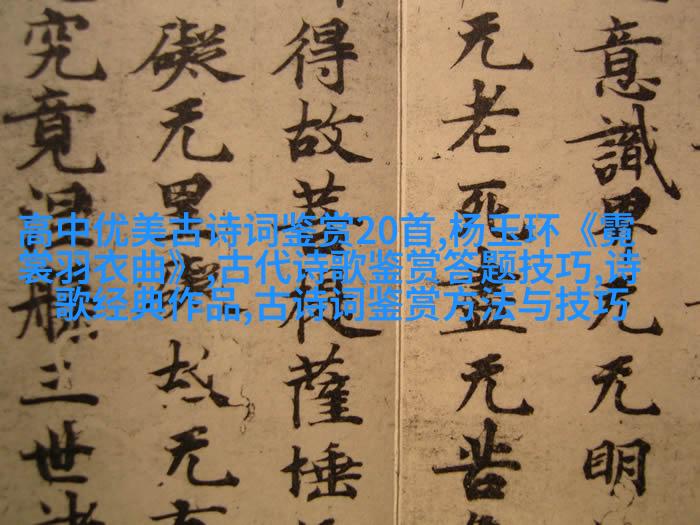 意識界无无明
无老死盡无苦
得故菩提薩埵
礙无罣礙故无有
究竟涅槃三世諸
高中优美古诗词鉴赏20首,杨玉环《霓
裳羽衣曲》,古代诗歌鉴赏答题技巧,诗
歌经典作品,古诗词鉴赏方法与技巧